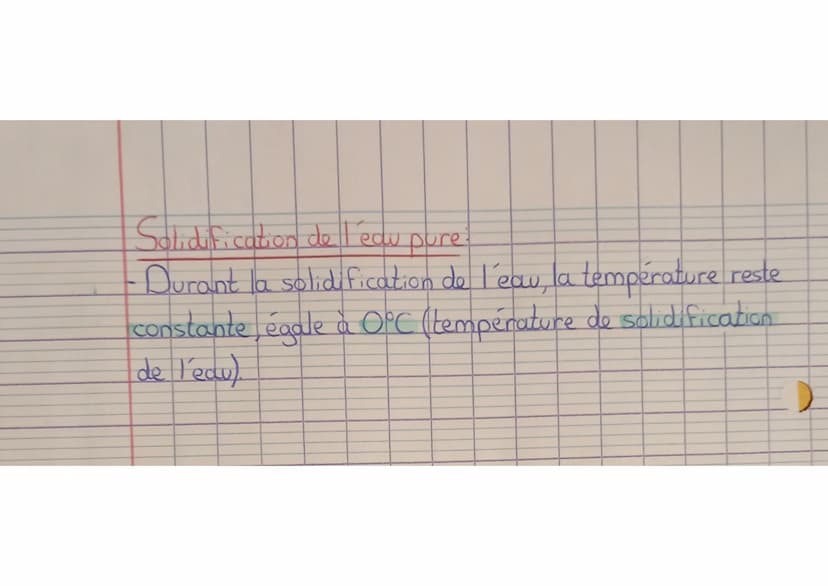 Solidification de l'eau pure:
- Durant la solidification de l'eau, la température reste
constante, égale à 0°C (température de solidification
de l'eau).